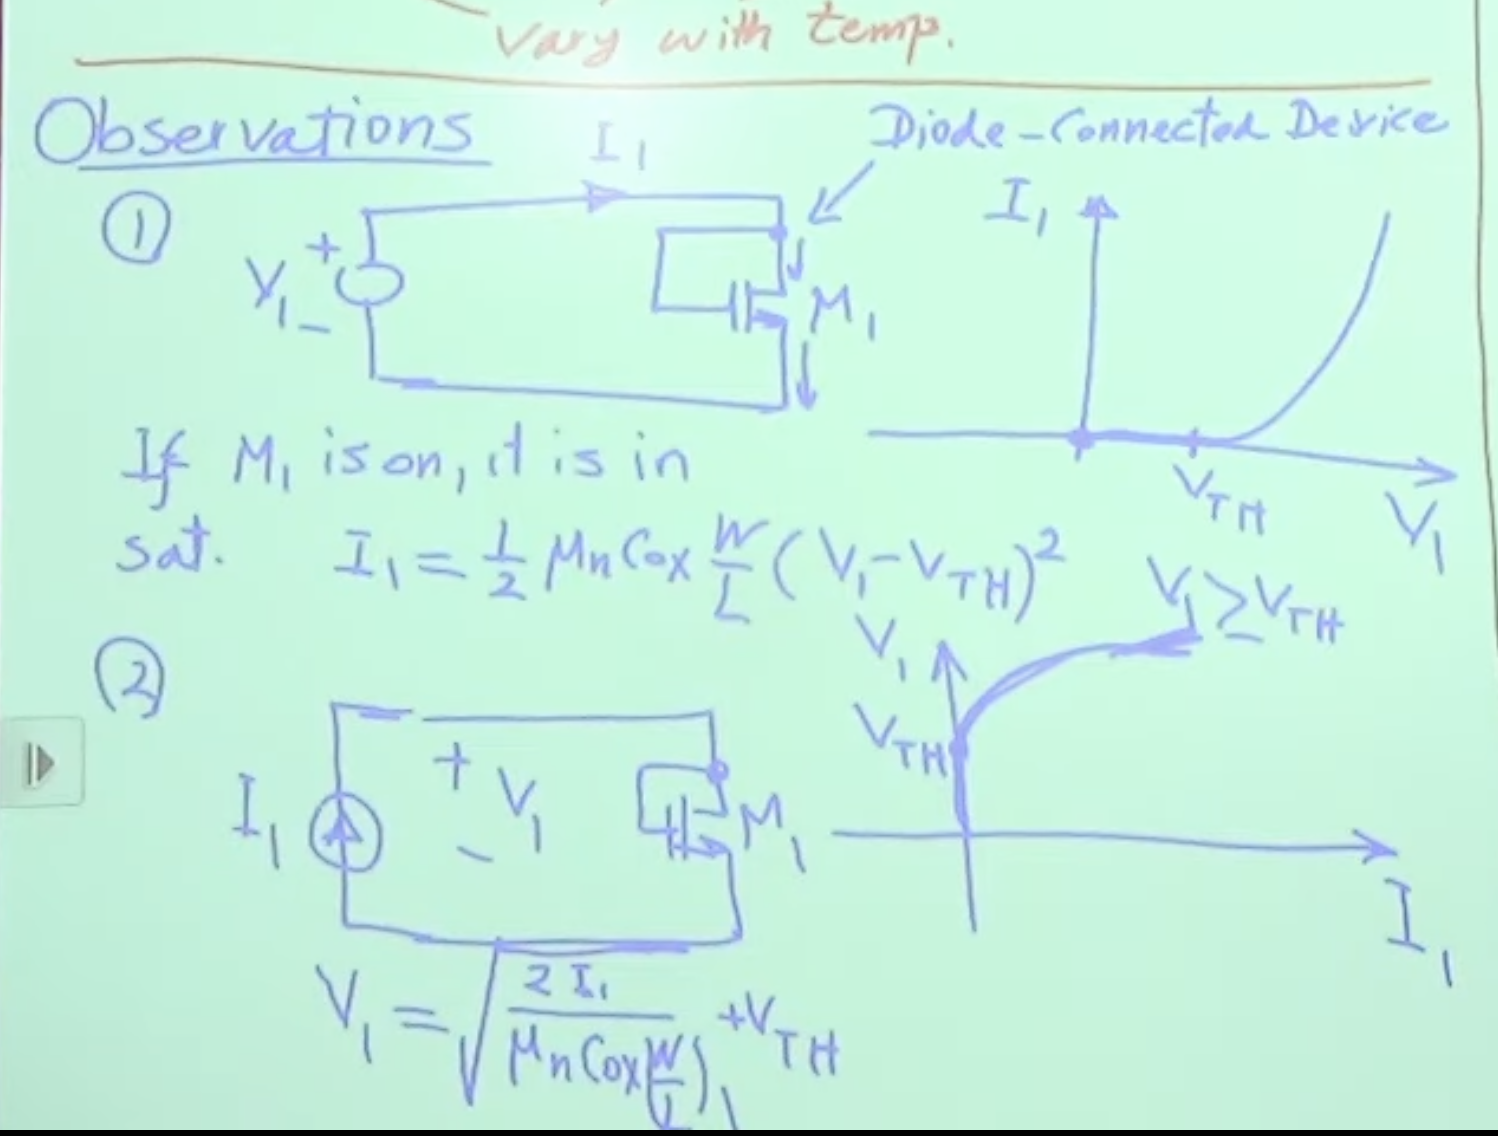 vary with temp.
Observations
Diode-Connected Device
①
I₁
V₁
+
-
M₁
I₁
V_TH
V₁
If M₁ is on, it is in
sat. I₁ = 1/2 μn Cox W/L (V₁-V_TH)²
V₁ ≥ V_TH
②
I₁
+ V₁ -
M₁
V₁
V_TH
I₁
V₁ = √(2 I₁ / μn Cox (W/L)₁) + V_TH